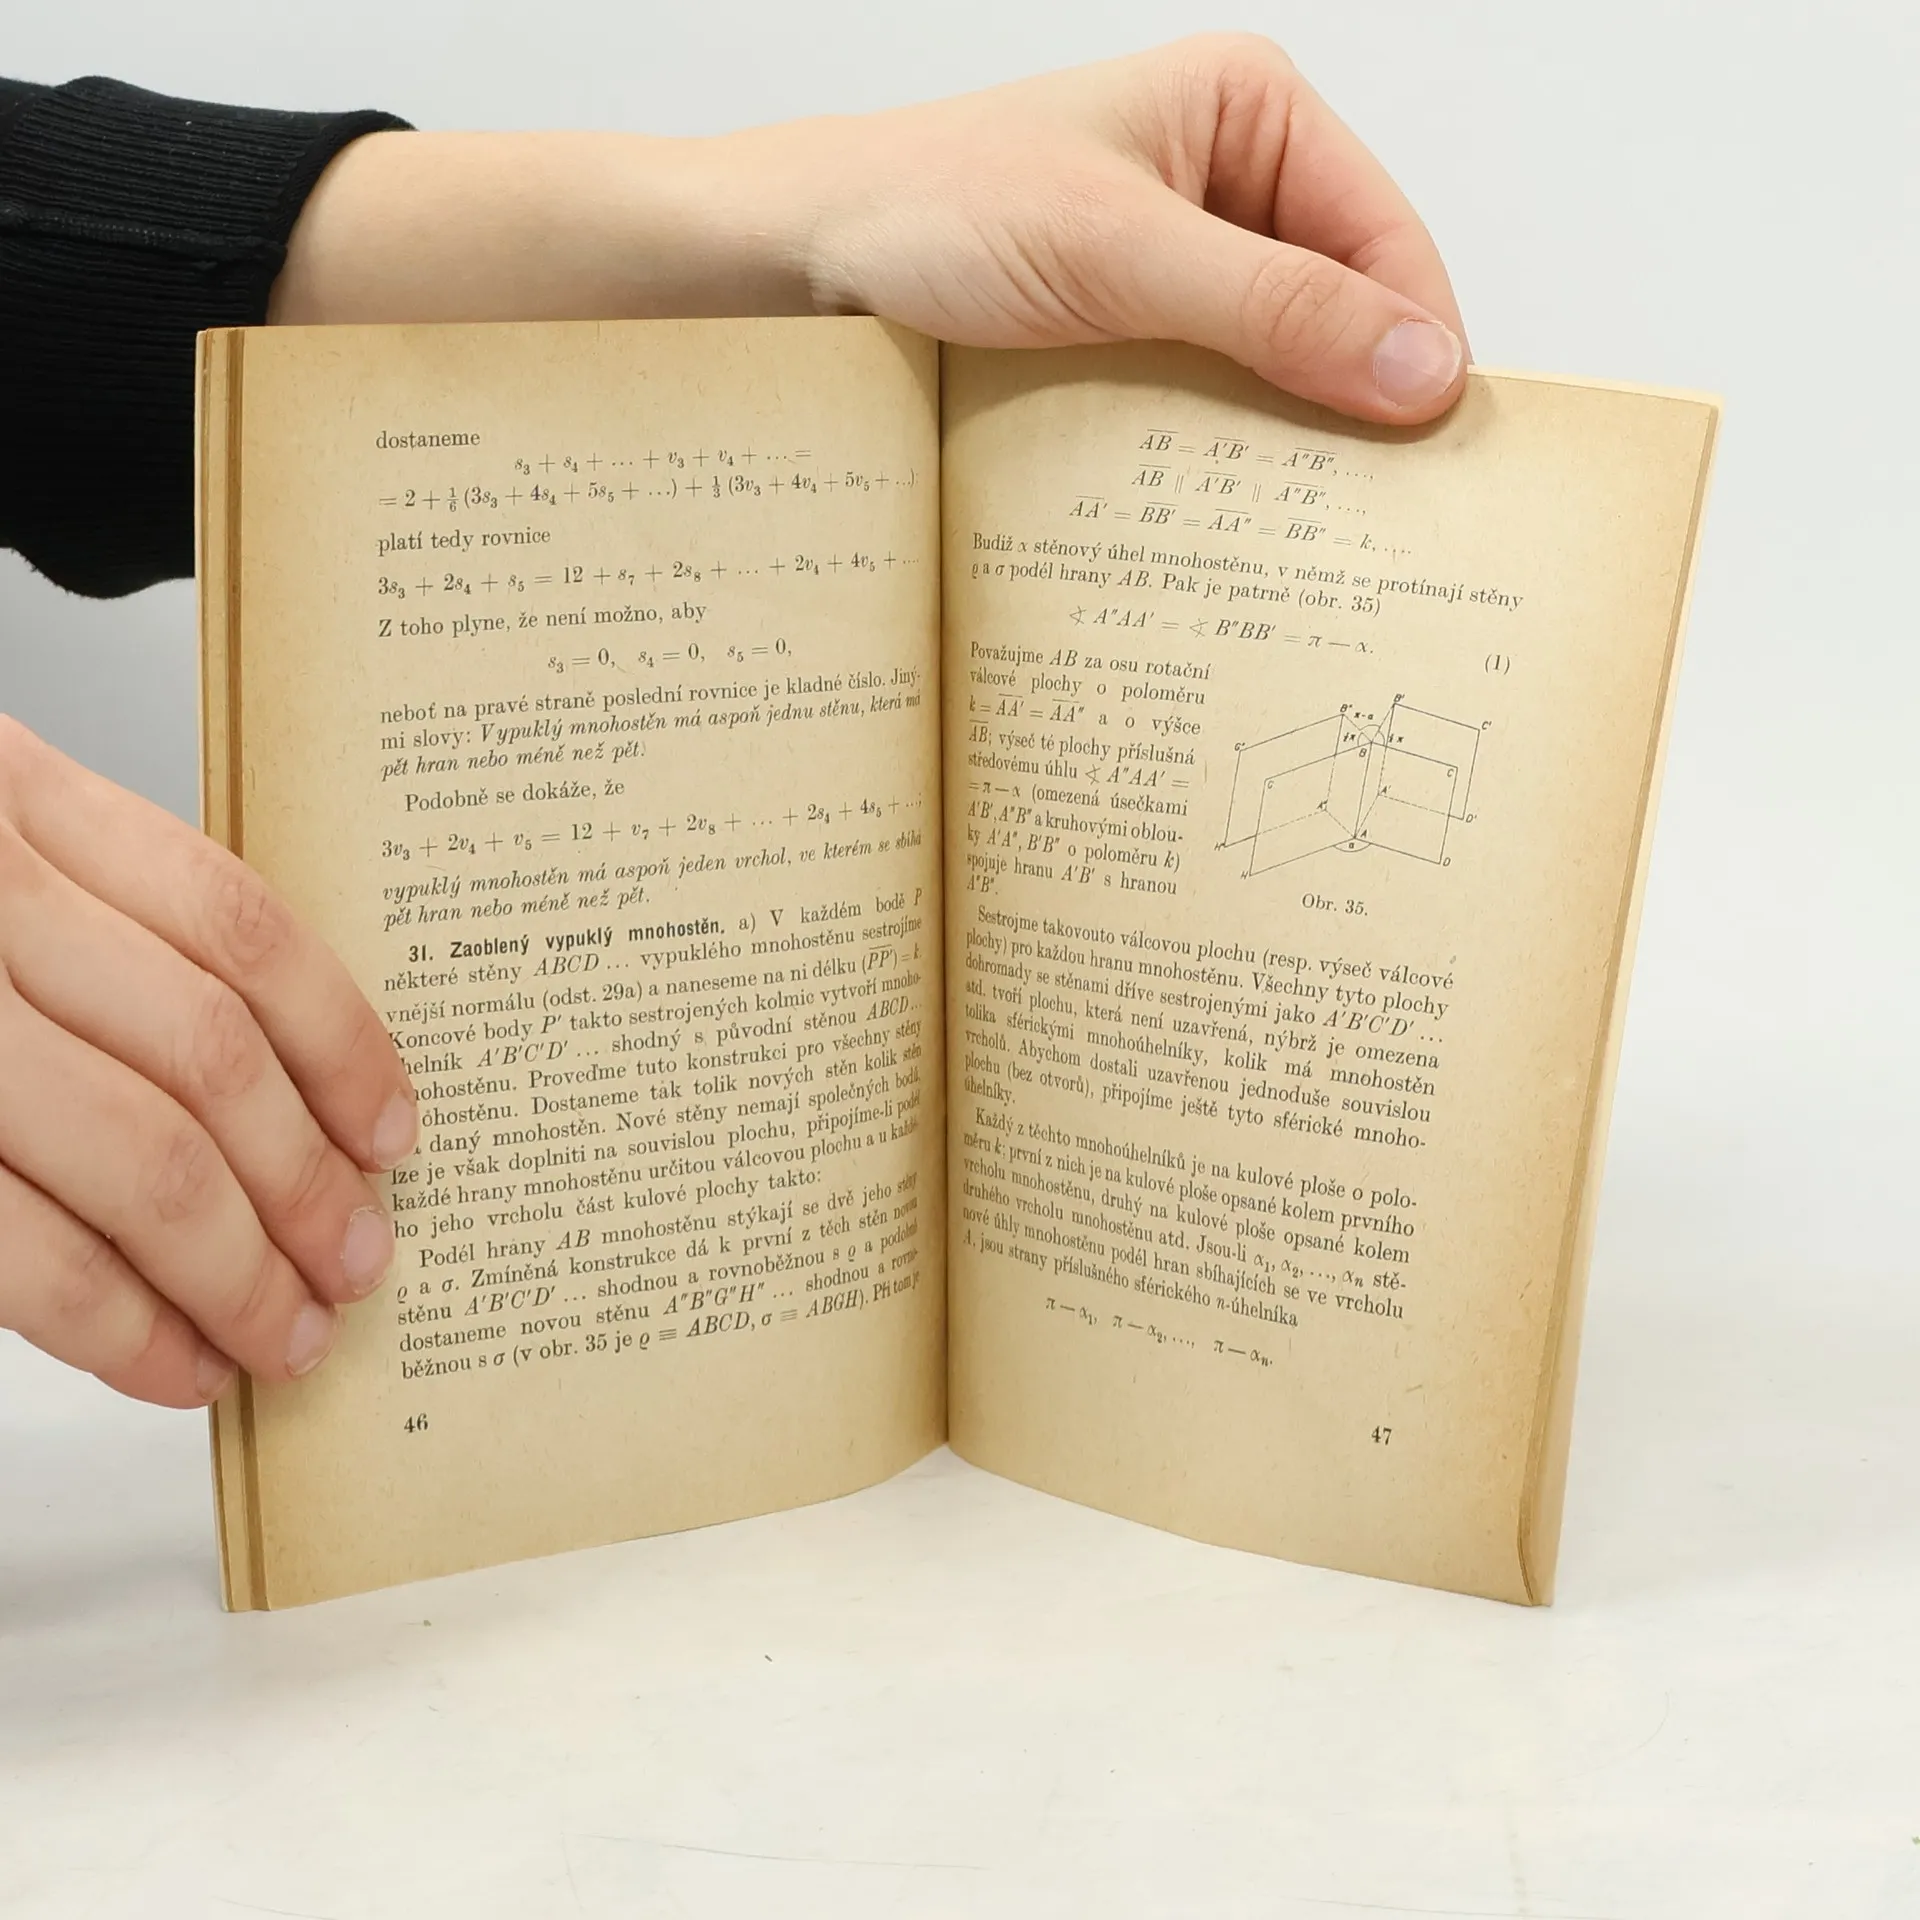 dostaneme
s₃ + s₄ + ... + v₃ + v₄ + ... =
= 2 + ⅙ (3s₃ + 4s₄ + 5s₅ + ...) + ⅓ (3v₃ + 4v₄ + 5v₅ + ...);
platí tedy rovnice
3s₃ + 2s₄ + s₅ = 12 + s₇ + 2s₈ + ... + 2v₄ + 4v₅ + ...
Z toho plyne, že není možno, aby
s₃ = 0, s₄ = 0, s₅ = 0,
neboť na pravé straně poslední rovnice je kladné číslo. Jiný-
mi slovy: Vypuklý mnohostěn má aspoň jednu stěnu, která má
pět hran nebo méně než pět.
Podobně se dokáže, že
3v₃ + 2v₄ + v₅ = 12 + v₇ + 2v₈ + ... + 2s₄ + 4s₅ + ...;
vypuklý mnohostěn má aspoň jeden vrchol, ve kterém se sbíhá
pět hran nebo méně než pět.
31. Zaoblený vypuklý mnohostěn. a) V každém bodě P
některé stěny ABCD ... vypuklého mnohostěnu sestrojíme
vnější normálu (odst. 29a) a naneseme na ni délku (P̅P̅'̅) = k.
Koncové body P' takto sestrojených kolmic vytvoří mnoho-
helník A'B'C'D' ... shodný s původní stěnou ABCD...
nohostěnu. Proveďme tuto konstrukci pro všechny stěny
ohostěnu. Dostaneme tak tolik nových stěn kolik stěn
daný mnohostěn. Nové stěny nemají společných bodů,
lze je však doplniti na souvislou plochu, připojíme-li podél
každé hrany mnohostěnu určitou válcovou plochu a u každé-
ho jeho vrcholu část kulové plochy takto:
Podél hrany AB mnohostěnu stýkají se dvě jeho stěny
ϱ a σ. Zmíněná konstrukce dá k první z těch stěn novou
stěnu A'B'C'D' ... shodnou a rovnoběžnou s ϱ a podobně
dostaneme novou stěnu A"B"G"H" ... shodnou a rovno-
běžnou s σ (v obr. 35 je ϱ ≡ ABCD, σ ≡ ABGH). Při tom je
46
A̅B̅ = A̅'̅B̅'̅ = A̅"̅B̅"̅, ...,
A̅B̅ ∥ A̅'̅B̅'̅ ∥ A̅"̅B̅"̅, ...,
A̅A̅'̅ = B̅B̅'̅ = A̅A̅"̅ = B̅B̅"̅ = k, ...
Budiž α stěnový úhel mnohostěnu, v němž se protínají stěny
ϱ a σ podél hrany AB. Pak je patrně (obr. 35)
∢ A"AA' = ∢ B"BB' = π — α. (1)
Považujme AB za osu rotační
válcové plochy o poloměru
k = A̅A̅'̅ = A̅A̅"̅ a o výšce
A̅B̅; výseč té plochy příslušná
středovému úhlu ∢ A"AA' =
= π — α (omezená úsečkami
A'B', A"B" a kruhovými oblou-
ky A'A", B'B" o poloměru k)
spojuje hranu A'B' s hranou
A"B".
B' B" π-α C' G" B C G A' A" D' H" A α D H
Obr. 35.
Sestrojme takovouto válcovou plochu (resp. výseč válcové
plochy) pro každou hranu mnohostěnu. Všechny tyto plochy
dohromady se stěnami dříve sestrojenými jako A'B'C'D' ...
atd. tvoří plochu, která není uzavřená, nýbrž je omezena
tolika sférickými mnohoúhelníky, kolik má mnohostěn
vrcholů. Abychom dostali uzavřenou jednoduše souvislou
plochu (bez otvorů), připojíme ještě tyto sférické mnoho-
úhelníky.
Každý z těchto mnohoúhelníků je na kulové ploše o polo-
měru k; první z nich je na kulové ploše opsané kolem prvního
vrcholu mnohostěnu, druhý na kulové ploše opsané kolem
druhého vrcholu mnohostěnu atd. Jsou-li α₁, α₂, ..., αₙ stě-
nové úhly mnohostěnu podél hran sbíhajících se ve vrcholu
A, jsou strany příslušného sférického n-úhelníka
π — α₁, π — α₂, ..., π — αₙ.
47